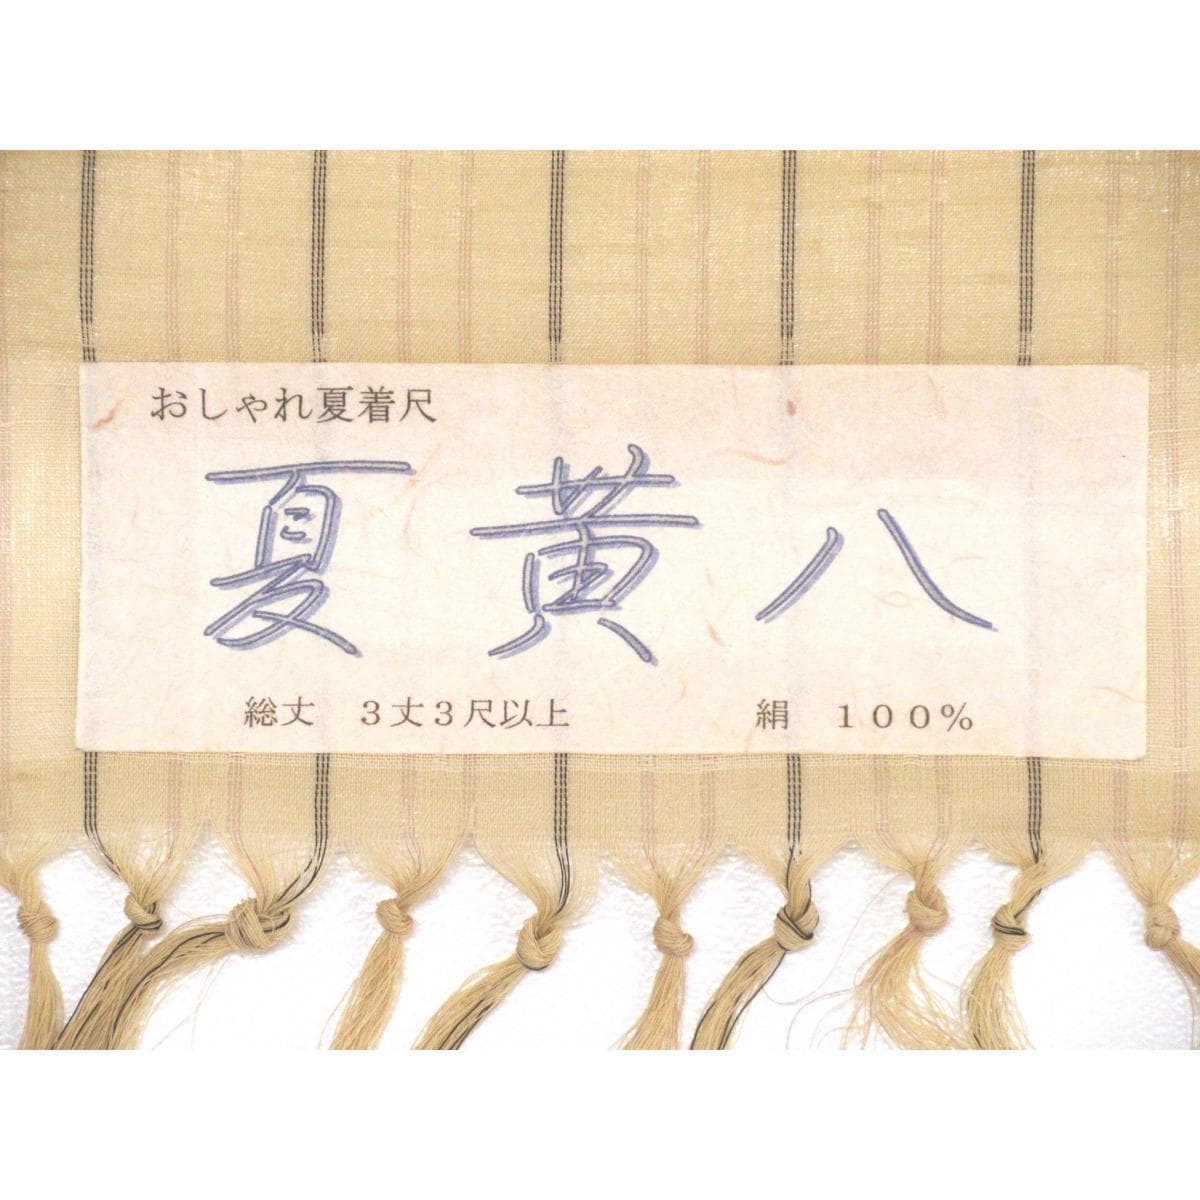 おしゃれ夏着尺
夏黄八
総丈　３丈３尺以上　絹　１００％